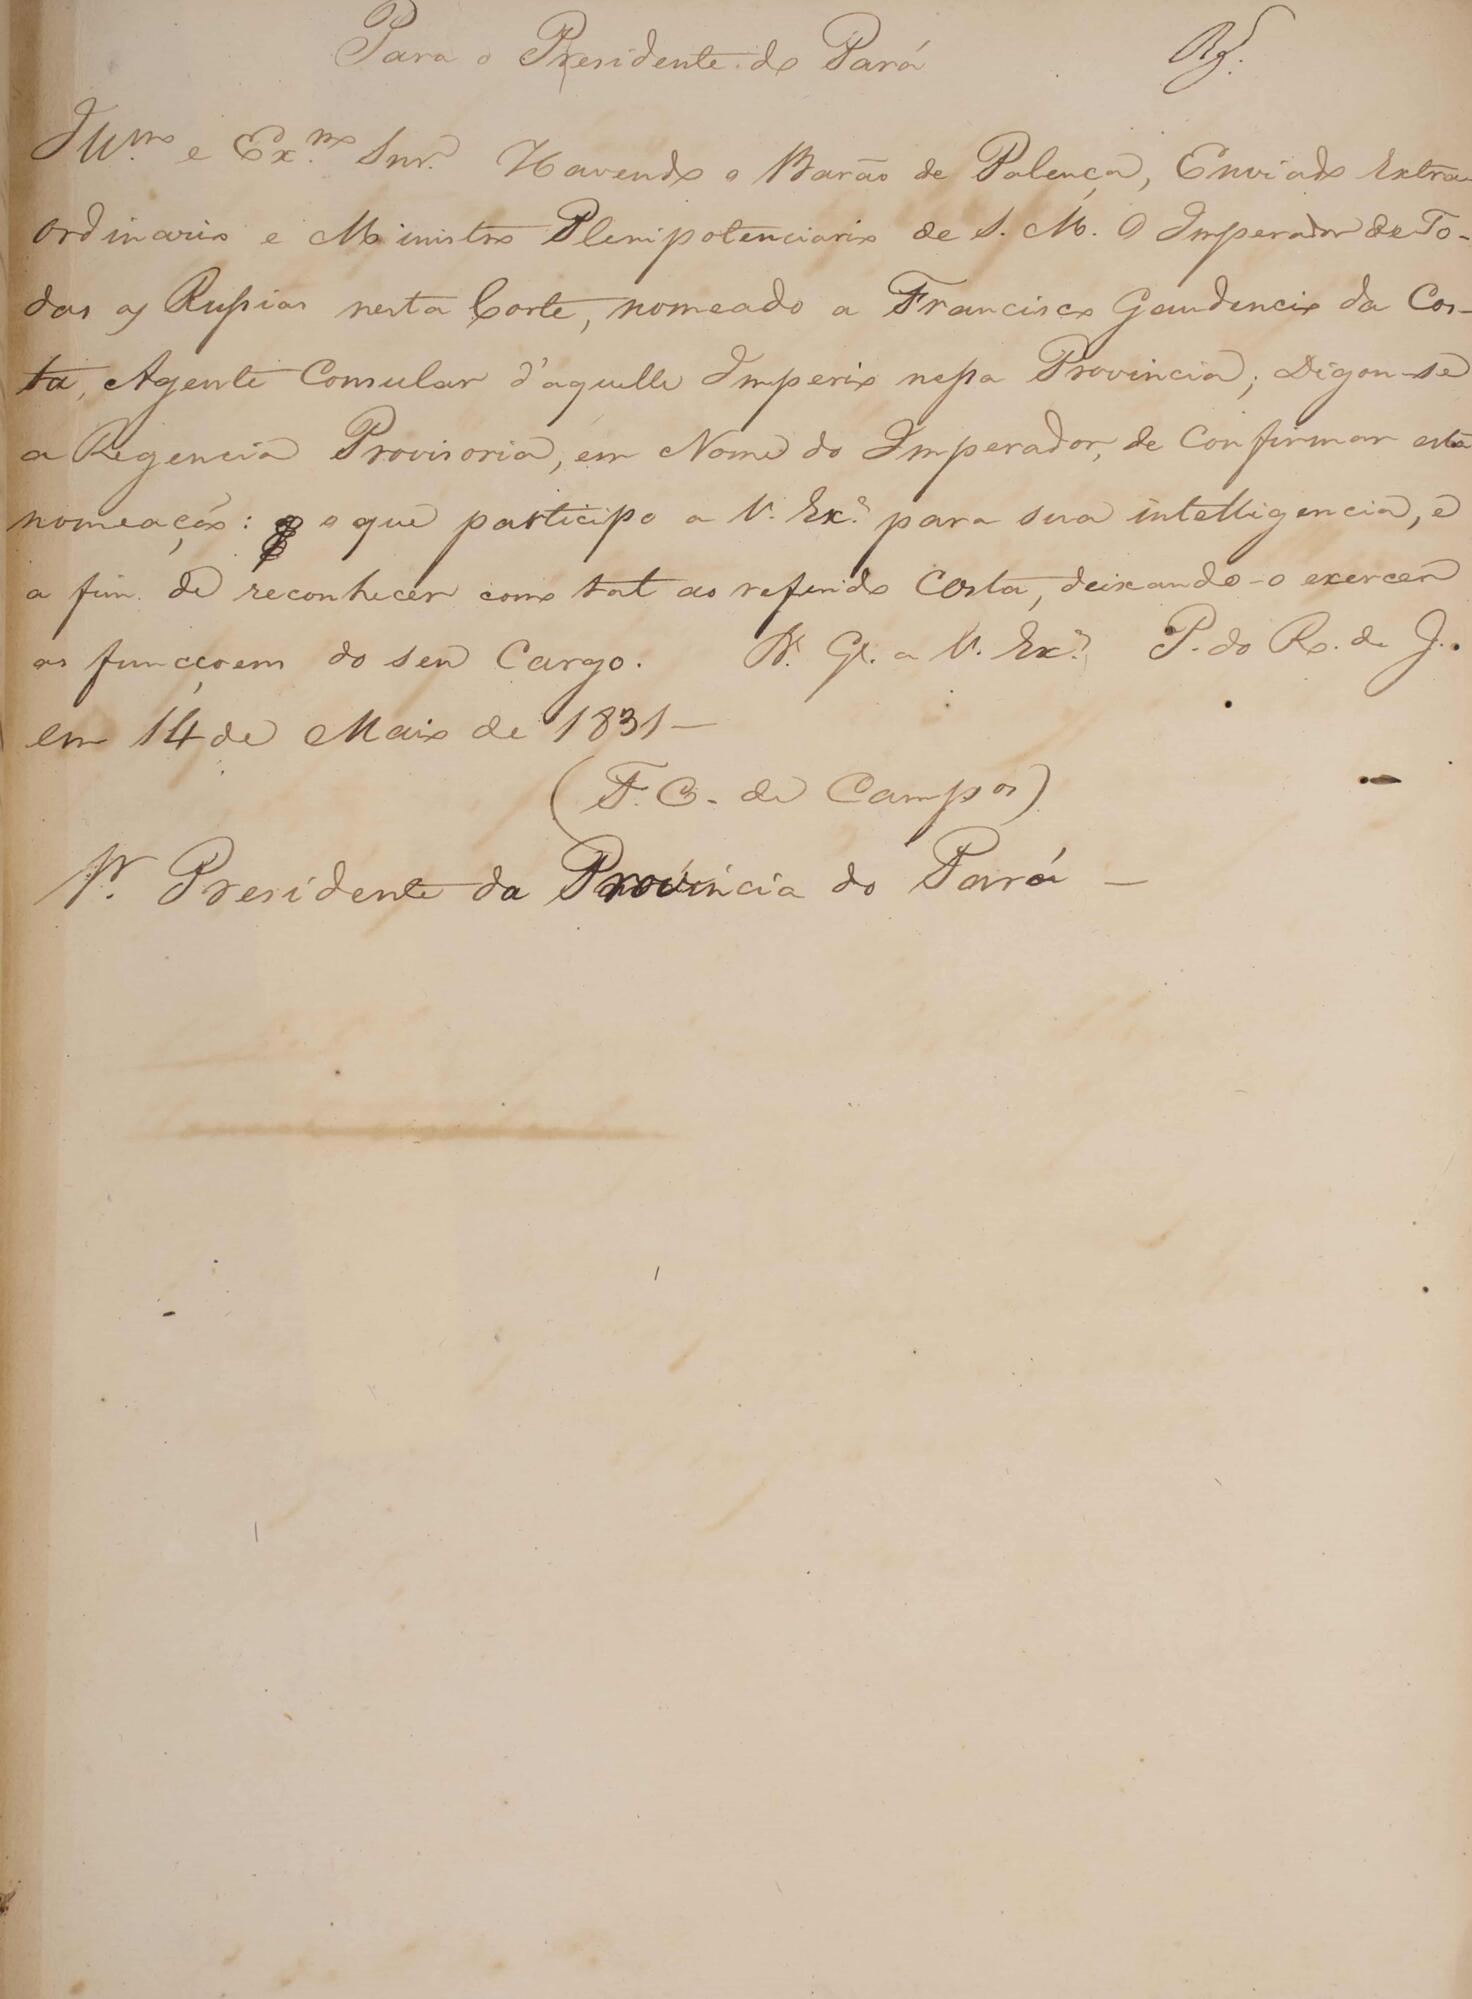 Para o Presidente do Pará
Rg.
Ill.mo e Ex.mo Snr. Havendo o Barão de Palença, Enviado Extra-
ordinario e Ministro Plenipotenciario de S. M. O Imperador de To-
das as Russias nesta Corte, nomeado a Francisco Gaudencio da Cos-
ta, Agente Consular d'aquelle Imperio nessa Provincia; Dignou-se
a Regencia Provisoria, em Nome do Imperador, de Confirmar esta
nomeação: o que participo a V. Ex.a para sua intelligencia, e
a fim de reconhecer como tal ao referido Costa, deixando-o exercer
as funcçoens do seu Cargo. D. G. a V. Ex.a P. do R. de J.
em 14 de Maio de 1831 —
(F. C. de Campos)
Sr. Presidente da Provincia do Pará —